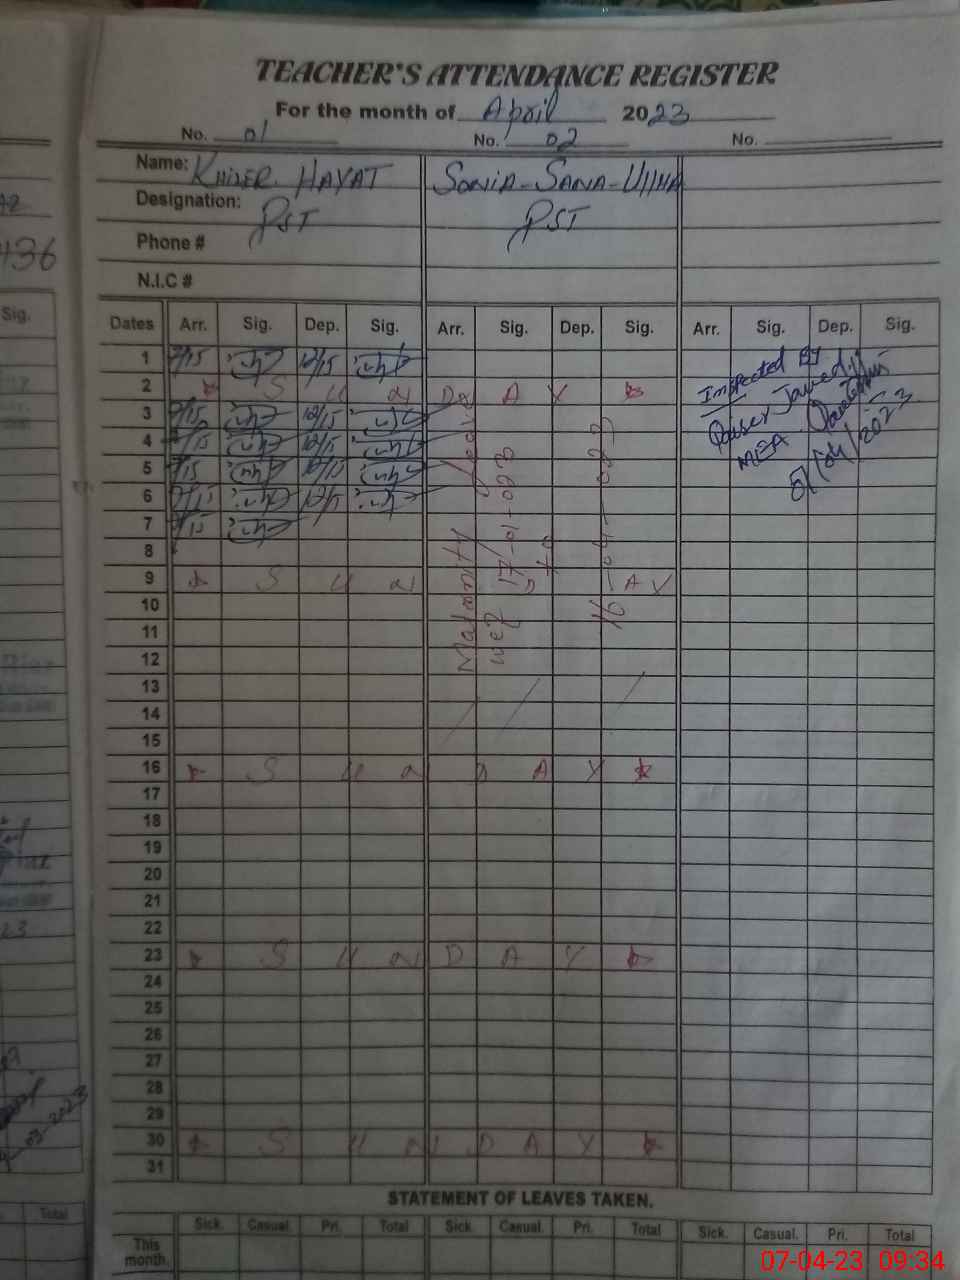 TEACHER'S ATTENDANCE REGISTER
For the month of April 2023
No. 01 No. 02 No.
Name: KHIZER HAYAT SONIA-SANA-Ullha
Designation: PST PST
Phone #
N.I.C #
Dates Arr. Sig. Dep. Sig. Arr. Sig. Dep. Sig. Arr. Sig. Dep. Sig.
1 7/15 12/15
2 S U N D A Y
3 7/15 12/15
4 7/15 12/15
5 7/15 12/15
6 7/15 12/15
7 7/15
8
9 S U N A Y
10
11
12
13
14
15
16 S U N D A Y
17
18
19
20
21
22
23 S U N D A Y
24
25
26
27
28
29
30 S U N D A Y
31
Maternity leave
wef 17-01-023
to
16-04-023
Inspected By
MEA
/04/2023
STATEMENT OF LEAVES TAKEN.
Sick. Casual. Pri. Total Sick. Casual. Pri. Total Sick. Casual. Pri. Total
This month.
436
Sig.
03-2023
Total
07-04-23 09:34